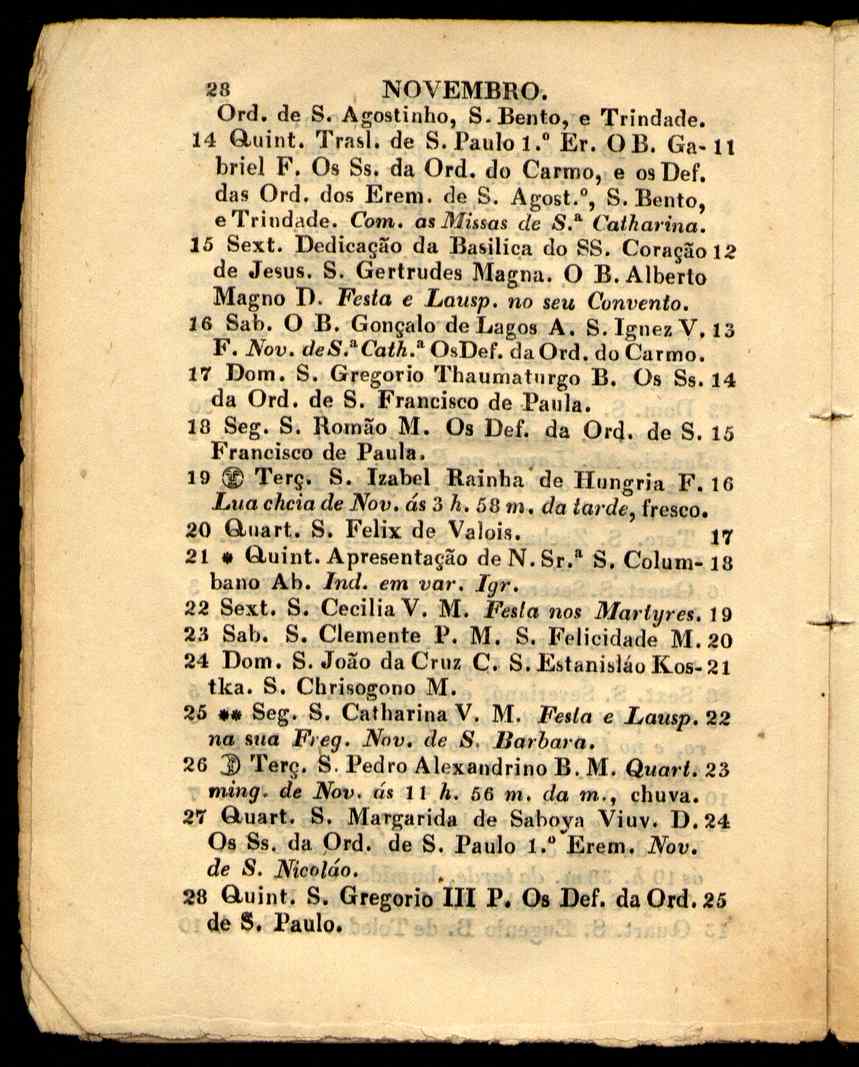 28 NOVEMBRO.
Ord. de S. Agostinho, S. Bento, e Trindade.
14 Quint. Trasl. de S. Paulo 1.º Er. O B. Ga- 11
briel F. Os Ss. da Ord. do Carmo, e os Def.
das Ord. dos Erem. de S. Agost.º, S. Bento,
e Trindade. Com. as Missas de S.ª Catharina.
15 Sext. Dedicação da Basilica do SS. Coração 12
de Jesus. S. Gertrudes Magna. O B. Alberto
Magno D. Festa e Lausp. no seu Convento.
16 Sab. O B. Gonçalo de Lagos A. S. Ignez V. 13
F. Nov. de S.ª Cath.ª Os Def. da Ord. do Carmo.
17 Dom. S. Gregorio Thaumaturgo B. Os Ss. 14
da Ord. de S. Francisco de Paula.
18 Seg. S. Romão M. Os Def. da Ord. de S. 15
Francisco de Paula.
19 Terç. S. Izabel Rainha de Hungria F. 16
Lua cheia de Nov. ás 3 h. 58 m. da tarde, fresco.
20 Quart. S. Felix de Valois. 17
21 * Quint. Apresentação de N. Sr.ª S. Colum- 18
bano Ab. Ind. em var. Igr.
22 Sext. S. Cecilia V. M. Festa nos Martyres. 19
23 Sab. S. Clemente P. M. S. Felicidade M. 20
24 Dom. S. João da Cruz C. S. Estanisláo Kos- 21
tka. S. Chrisogono M.
25 ** Seg. S. Catharina V. M. Festa e Lausp. 22
na sua Freg. Nov. de S. Barbara.
26 Terç. S. Pedro Alexandrino B. M. Quart. 23
ming. de Nov. ás 11 h. 56 m. da m., chuva.
27 Quart. S. Margarida de Saboya Viuv. D. 24
Os Ss. da Ord. de S. Paulo 1.º Erem. Nov.
de S. Nicoláo.
28 Quint. S. Gregorio III P. Os Def. da Ord. 25
de S. Paulo.